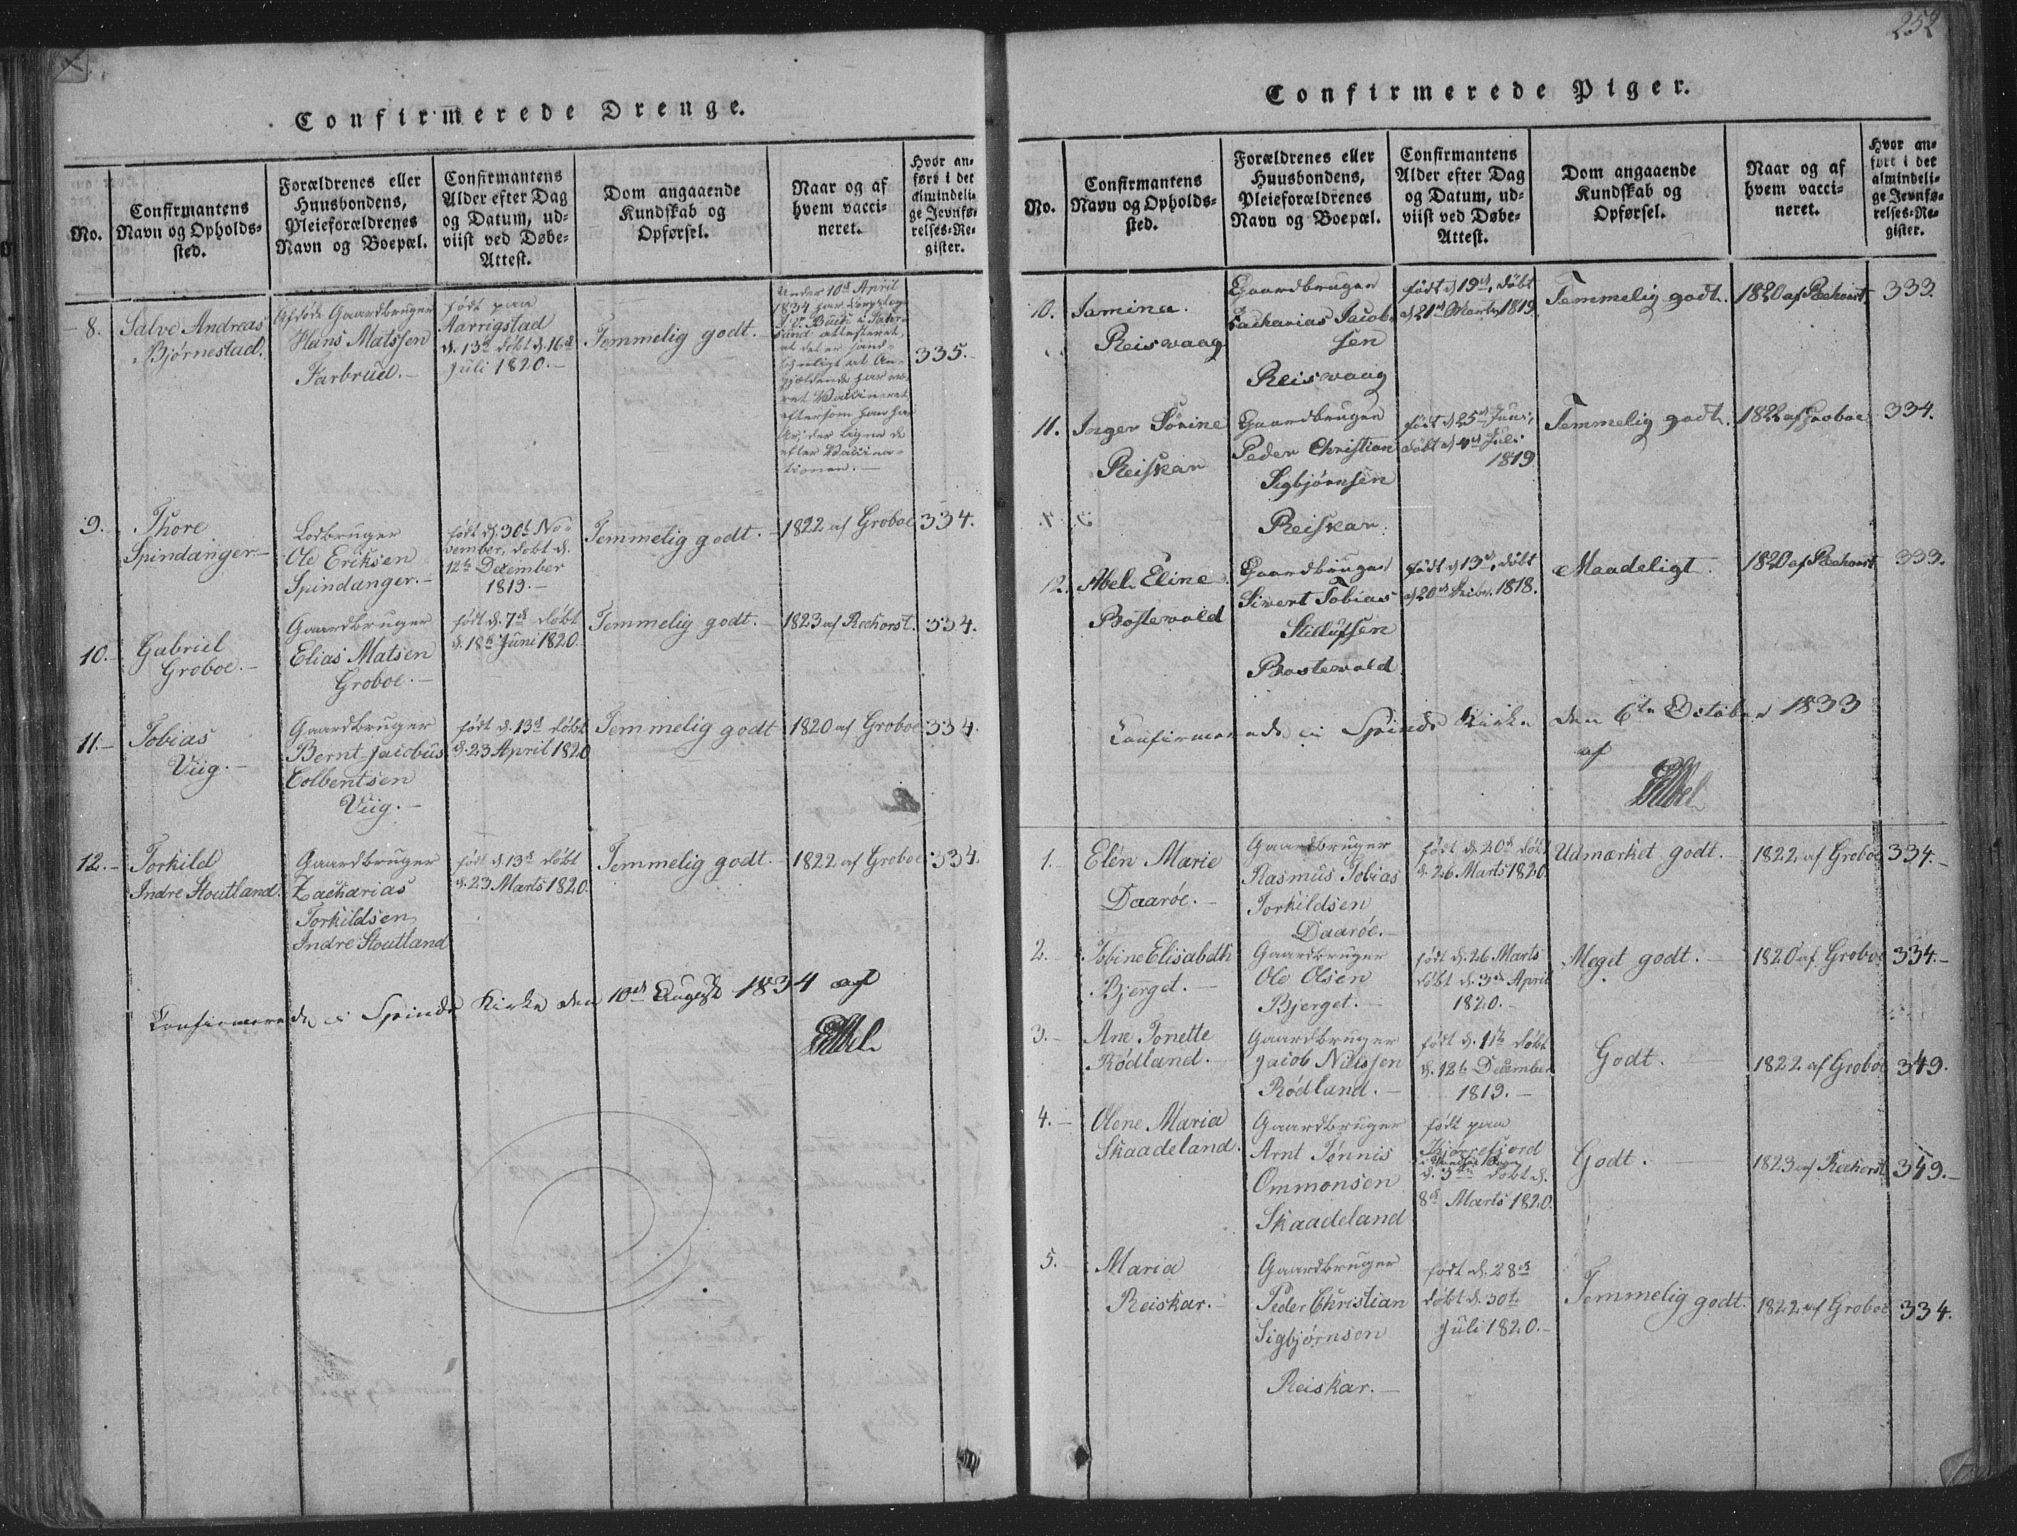 Confirmerede Drenge.
No.
Confirmantens
Navn og Opholds-
sted.
Forældrenes eller
Huusbondens,
Pleieforældrenes
Navn og Boepæl.
Confirmantens
Alder efter Dag
og Datum, ud-
viist ved Døbe-
Attest.
Dom angaaende
Kundskab og
Opførsel.
Naar og af
hvem vacci-
neret.
Hvor an-
ført i det
almindeli-
ge Jevnfø-
relses-Re-
gister.
8.
Salve Andreas
Bjørnestad.
Afdøde Gaardbruger
Hans Matssen
Farbrud.
født paa
Marrigstad
d. 13d døbt d. 16d
Juli 1820.
Temmelig godt.
Under 10d April
1834 har
attesteret,
at det er sand-
synligt at An-
gjældende har væ-
ret Vaccineret
eftersom han har
Ar, der ligne de
efter Vaccina-
tionen.
335.
9.
Thore
Spindanger.
Lodbruger
Ole Eriksen
Spindanger.
født d. 30t No-
vember, døbt d.
12te December
1819.
Temmelig godt.
1822 af Groboe
334.
10.
Gabriel
Groboe.
Gaardbruger
Elias Matsen
Groboe.
født d. 7d døbt
d. 18d Juni 1820.
Temmelig godt.
1823 af Reehorst.
334.
11.
Tobias
Viig.
Gaardbruger
Bernt Jacobus
Colbentsen
Viig.
født d. 13d døbt
d. 23 April 1820
Temmelig godt
1820 af Groboe
334.
12.
Torkild
Indre Stoutland.
Gaardbruger
Zacharias
Torkildsen
Indre Stoutland
født d. 13d døbt
d. 23 Marts 1820.
Temmelig godt.
1822 af Groboe
334.
Confirmerede i Spinds Kirke den 10d August 1834 af
Abel
252
Confirmerede Piger.
No.
Confirmantens
Navn og Opholds-
sted.
Forældrenes eller
Huusbondens,
Pleieforældrenes
Navn og Boepæl.
Confirmantens
Alder efter Dag
og Datum, ud-
viist ved Døbe-
Attest.
Dom angaaende
Kundskab og
Opførsel.
Naar og af
hvem vacci-
neret.
Hvor an-
ført i det
almindeli-
ge Jevnfø-
relses-Re-
gister.
10.
Samine
Reisvaag
Gaardbruger
Zacharias Jacob-
sen
Reisvaag
født d 19d, døbt
d 21d Marts 1819
Temmelig godt.
1820 af Reehorst
333.
11.
Inger Sørine
Reiskar
Gaardbruger
Peder Christian
Sigbjørnsen
Reiskar.
født d 25d Juni,
døbt d 4d Juli
1819
Temmelig godt.
1822 af Groboe
334.
12.
Abel Eline
Bostevold
Gaardbruger
Sivert Tobias
Stillufsen
Bostevold
født d 13d, døbt
d 20d 1818.
Maadeligt.
1820 af Reehorst
333.
Confirmerede i Spinds Kirke den 6te October 1833
af
Abel
1.
Elen Marie
Daarøe.
Gaardbruger
Rasmus Tobias
Torkildsen
Daarøe.
født d. 20d døbt
d. 26 Marts 1820.
Udmærket godt.
1822 af Groboe
334.
2.
Tobine Elisabeth
Bjerget.
Gaardbruger
Ole Olsen
Bjerget.
født d. 26 Marts
døbt d. 3d April
1820.
Meget godt.
1820 af Groboe
334.
3.
Ane Tonette
Rødland.
Gaardbruger
Jacob Nilssen
Rødland.
født d. 1te døbt
d. 12te December
1819.
Godt.
1822 af Groboe
349.
4.
Olene Maria
Skaadeland.
Gaardbruger
Arnt Tønnis
Ommonsen
Skaadeland
født paa
Bjørrefjord
d. 3die døbt d.
8d Marts 1820.
Godt.
1823 af Reehorst
349.
5.
Maria
Reiskar.
Gaardbruger
Peder Christian
Sigbjørnsen
Reiskar.
født d. 28d
døbt d. 30t
Juli 1820.
Temmelig godt.
1822 af Groboe
334.